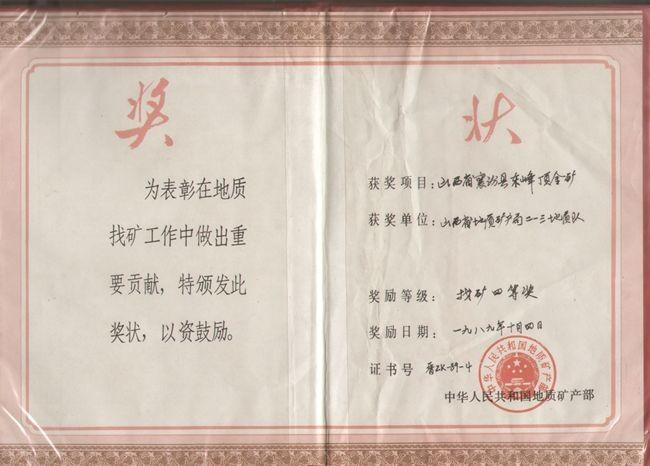 奖状
为表彰在地质
找矿工作中做出重
要贡献，特颁发此
奖状，以资鼓励。
获奖项目：山西省襄汾县东峰顶金矿
获奖单位：山西省地质矿产局二一三地质队
奖励等级：找矿四等奖
奖励日期：一九八九年十月四日
证书号 晋ZK-89-4
中华人民共和国地质矿产部
中华人民共和国地质矿产部